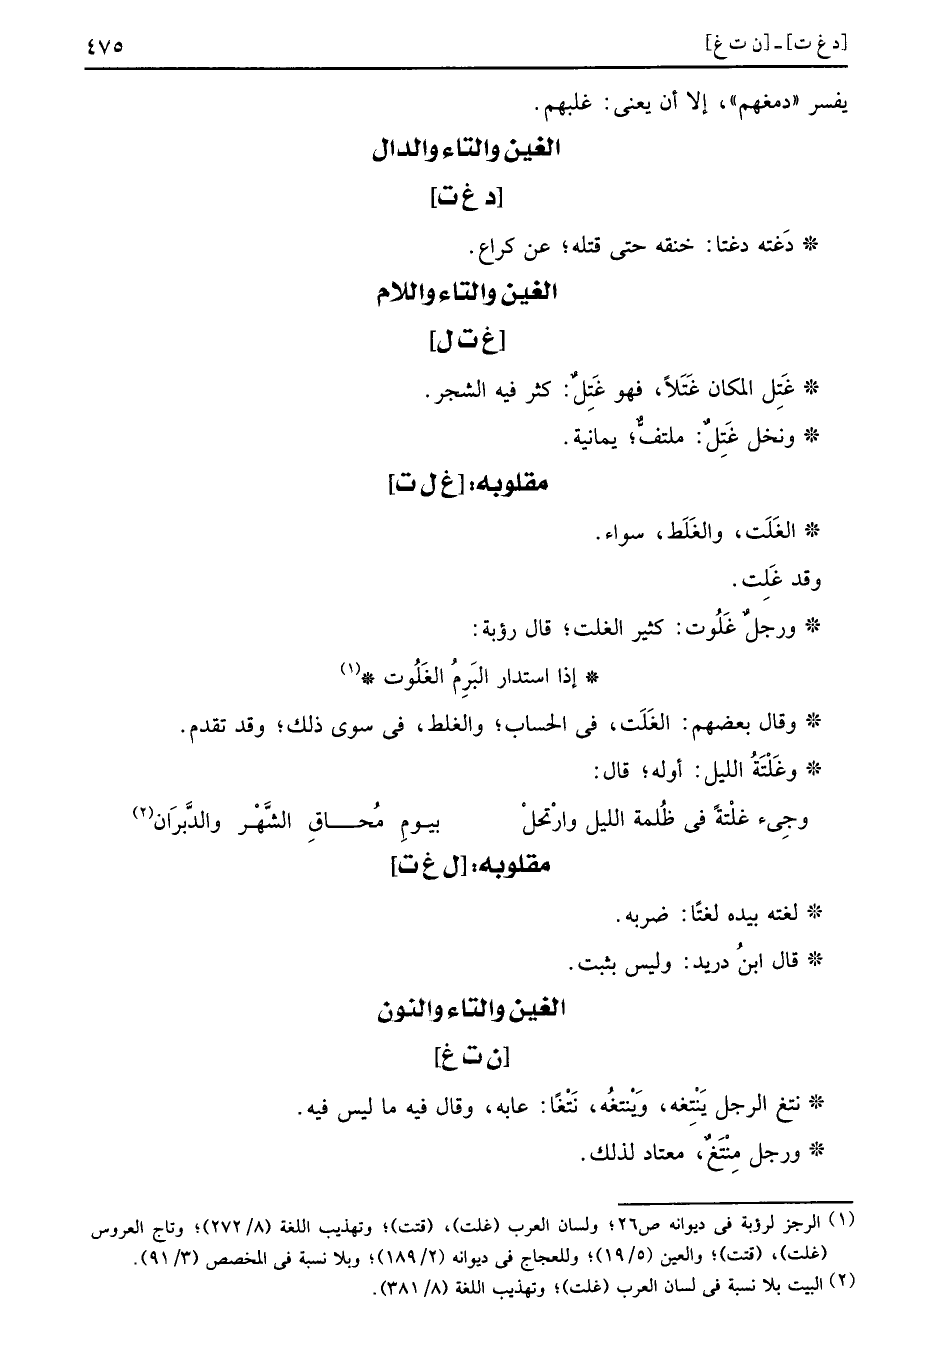 [د غ ت] ـ [ن ت غ] ٤٧٥
يفسر «دمغهم»، إلا أن يعنى: غلبهم.
الغين والتاء والدال
[د غ ت]
* دَغته دغتا: خنقه حتى قتله؛ عن كراع.
الغين والتاء واللام
[غ ت ل]
* غَتِل المكان غَتَلاً، فهو غَتِلٌ: كثر فيه الشجر.
* ونخل غَتِلٌ: ملتفٌّ؛ يمانية.
مقلوبه: [غ ل ت]
* الغَلَت، والغَلَط، سواء.
وقد غَلِت.
* ورجلٌ غَلُوت: كثير الغلت؛ قال رؤبة:
* إذا استدار البَرِمُ الغَلُوت *(١)
* وقال بعضهم: الغَلَت، فى الحساب؛ والغلط، فى سوى ذلك؛ وقد تقدم.
* وغَلْتَةُ الليل: أوله؛ قال:
وجِىء غلْتةً فى ظُلمة الليل وارْتحلْ بيـومِ مُحـــاقِ الشَّهْـر والدَّبرَان(٢)
مقلوبه: [ل غ ت]
* لغته بيده لغتًا: ضربه.
* قال ابنُ دريد: وليس بثبت.
الغين والتاء والنون
[ن ت غ]
* نتغ الرجل يَنْتِغه، وَيْنتغُه، نَتْغًا: عابه، وقال فيه ما ليس فيه.
* ورجل مِنْتَغٌ، معتاد لذلك.
(١) الرجز لرؤبة فى ديوانه ص٢٦؛ ولسان العرب (غلت)، (قتت)؛ وتهذيب اللغة (٨/ ٢٧٢)؛ وتاج العروس
(غلت)، (قتت)؛ والعين (٥/ ١٩)؛ وللعجاج فى ديوانه (٢/ ١٨٩)؛ وبلا نسبة فى المخصص (٣/ ٩١).
(٢) البيت بلا نسبة فى لسان العرب (غلت)؛ وتهذيب اللغة (٨/ ٣٨١).